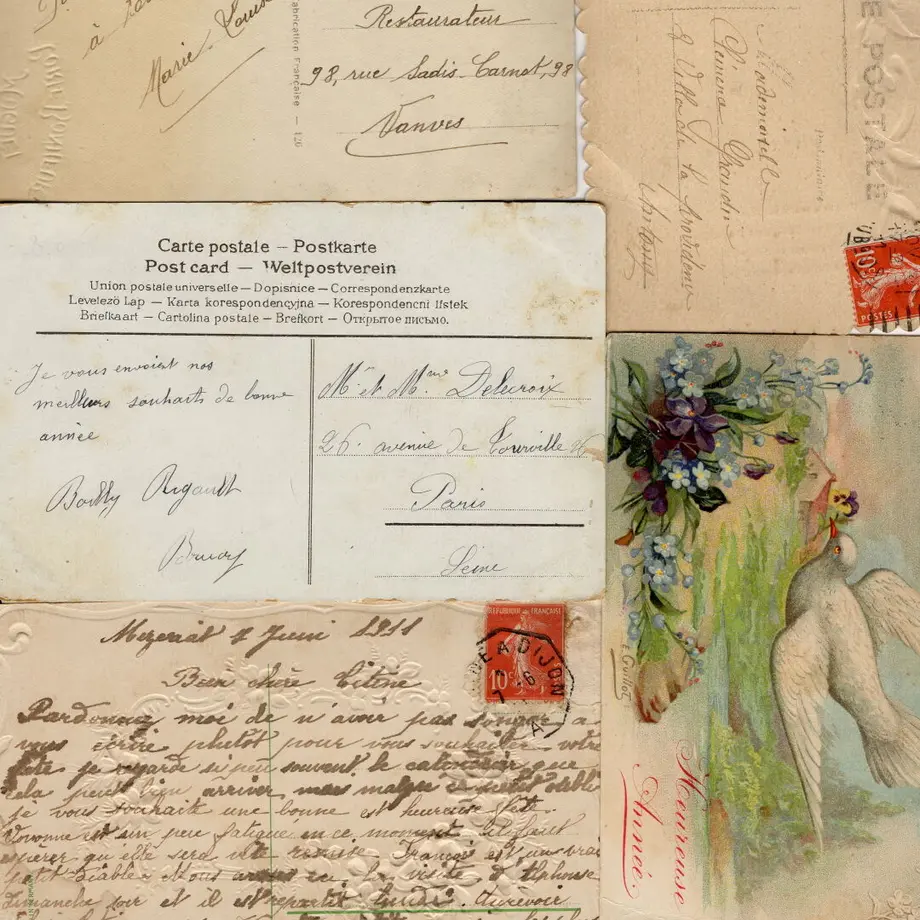 à
Marie-Louise
Fabrication Française — 126
Restaurateur
98, rue Sadis-Carnot, 98
Vanves
E POSTALE
Mademoiselle
8 Villa de la Providence
10c
POSTES
Carte postale – Postkarte
Post card — Weltpostverein
Union postale universelle — Dopisnice — Correspondenzkarte
Levelező Lap — Karta korespondencyjna — Korespondencni lístek
Briefkaart — Cartolina postale — Brefkort — Открытое письмо.
Je vous envoient nos
meilleurs souhaits de bonne
année
Boilly Rigault
Brunoy
Mr et Mme Delacroix
26 avenue de Tourville 26
Paris
Seine
Mezeriat 1 Juin 1911
Bien chère Titine
Pardonnez moi de n'avoir pas songer a
vous écrire plutôt pour vous souhaiter votre
fête je regarde si peu souvent le calendrier que
cela peut bien arriver mais malgré ce petit oubli
je vous souhaite une bonne est heureuse fête.
est un peu fatiguée en ce moment il faut
espérer qu'elle sera vite remise. François est un vrai
petit diable. Nous avons eu la visite d'Alphonse
dimanche soir et il est repartit lundi. Aurevoir
REPUBLIQUE FRANÇAISE
10c
A DIJON
E. Guillot
Heureuse
Année.